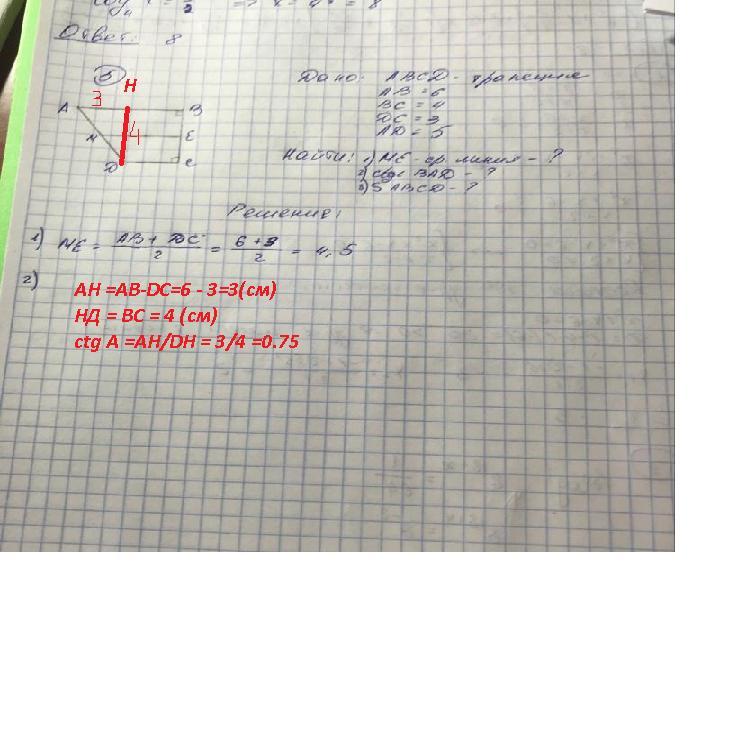 Ответ: 8
5
Дано: ABCD - трапеция
AB = 6
BC = 4
DC = 3
AD = 5
Найти: 1) ME - ср. линия - ?
2) ctg BAD - ?
3) S ABCD - ?
H
3
A
B
4
M
E
D
C
Решение:
1) ME = AB + DC / 2 = 6 + 3 / 2 = 4,5
2)
AH =AB-DC=6 - 3=3(см)
НД = ВС = 4 (см)
ctg A =AH/DH = 3/4 =0.75